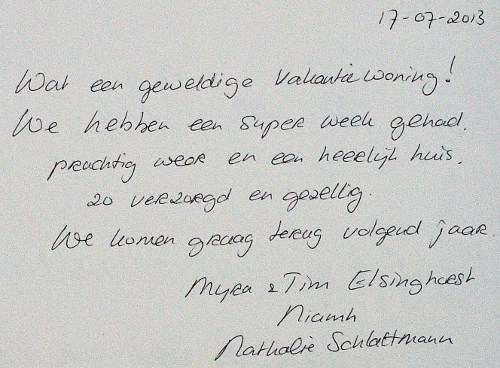 17-07-2013
Wat een geweldige vakantiewoning!
We hebben een super week gehad.
prachtig weer en een heerlijk huis.
zo verzorgd en gezellig.
We komen graag terug volgend jaar.
Myra & Tim Elsinghorst
Niamh
Nathalie Schlattmann